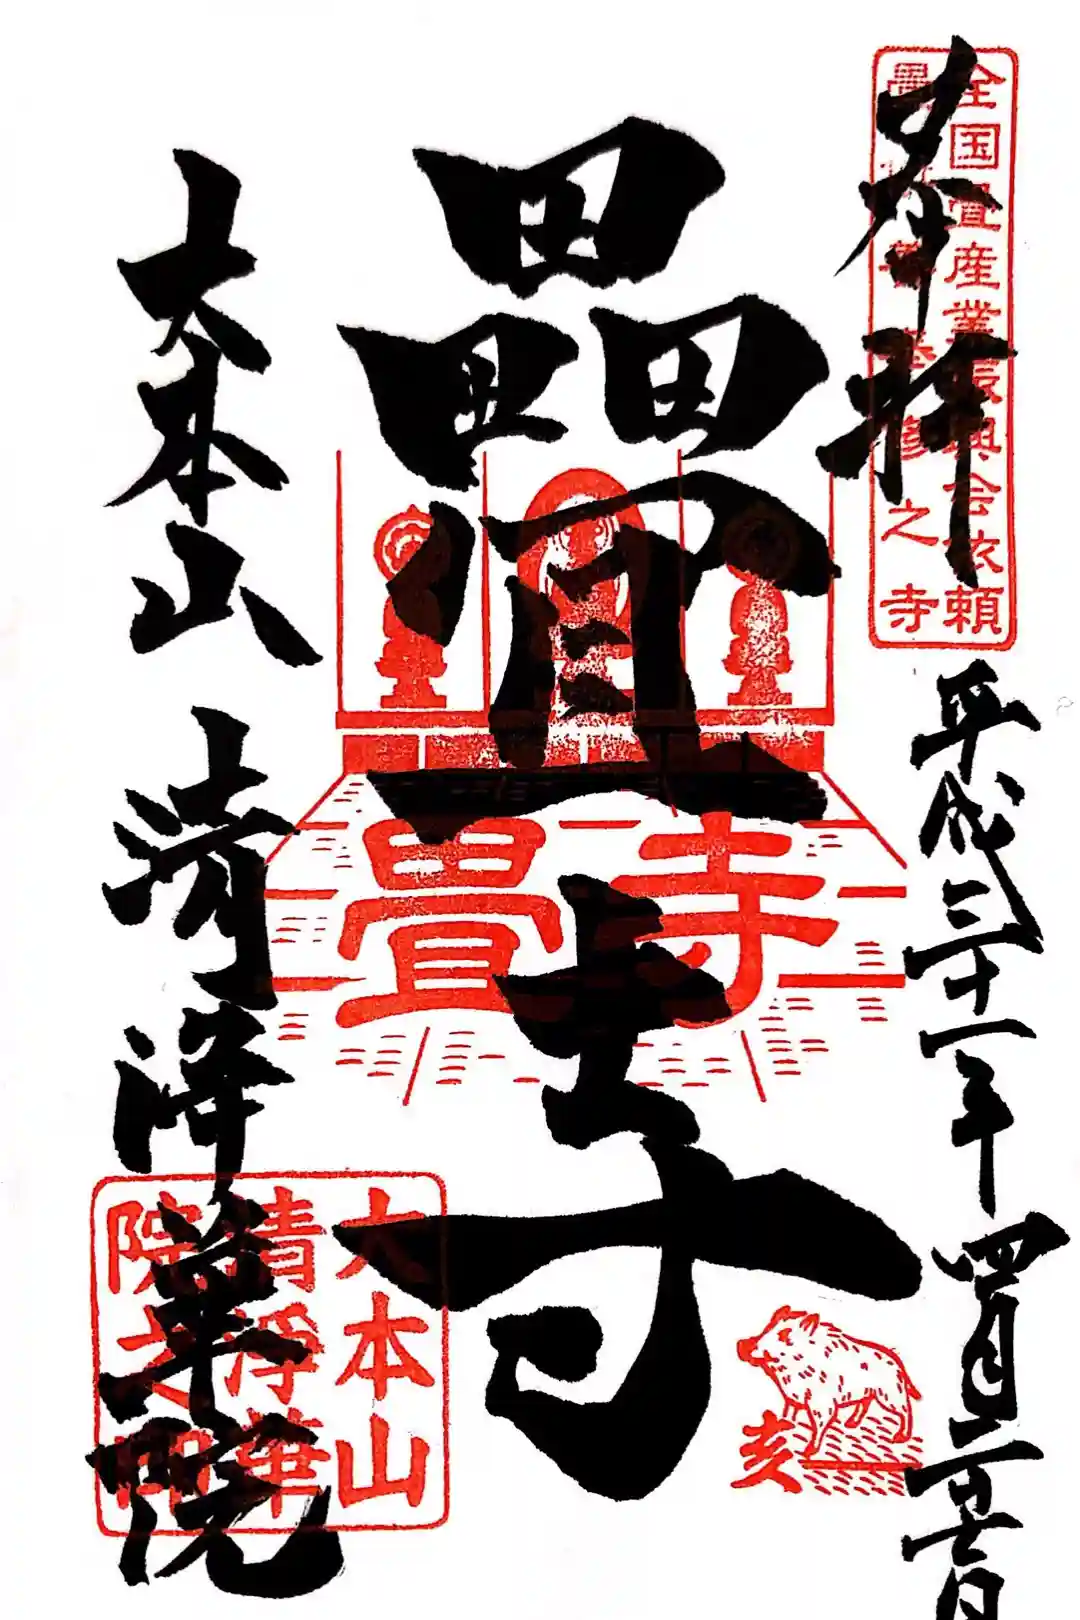 奉拝
全国畳産業振興会依頼
之寺
平成三十一年四月二十五日
疊寺
畳寺
亥
大本山
清浄華院
大本山
清浄華
院之印